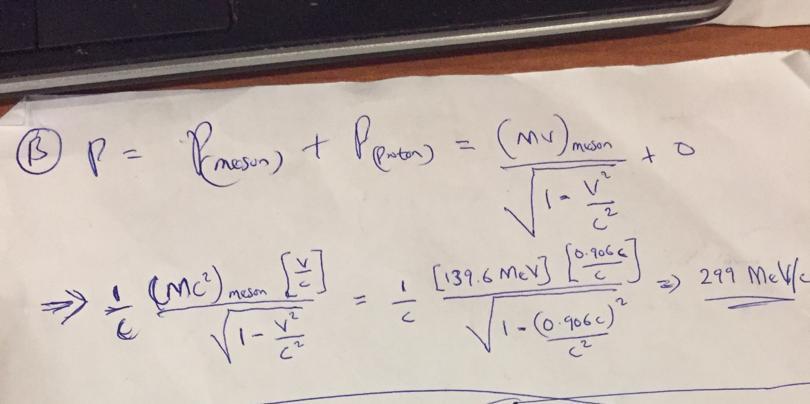 (B) P = P(meson) + P(proton) = (MV)meson / √(1 - V²/c²) + 0
⇒ 1/c (Mc²)meson [V/c] / √(1 - V²/c²) = 1/c [139.6 MeV] [0.906c/c] / √(1 - (0.906c)²/c²) ⇒ 299 MeV/c